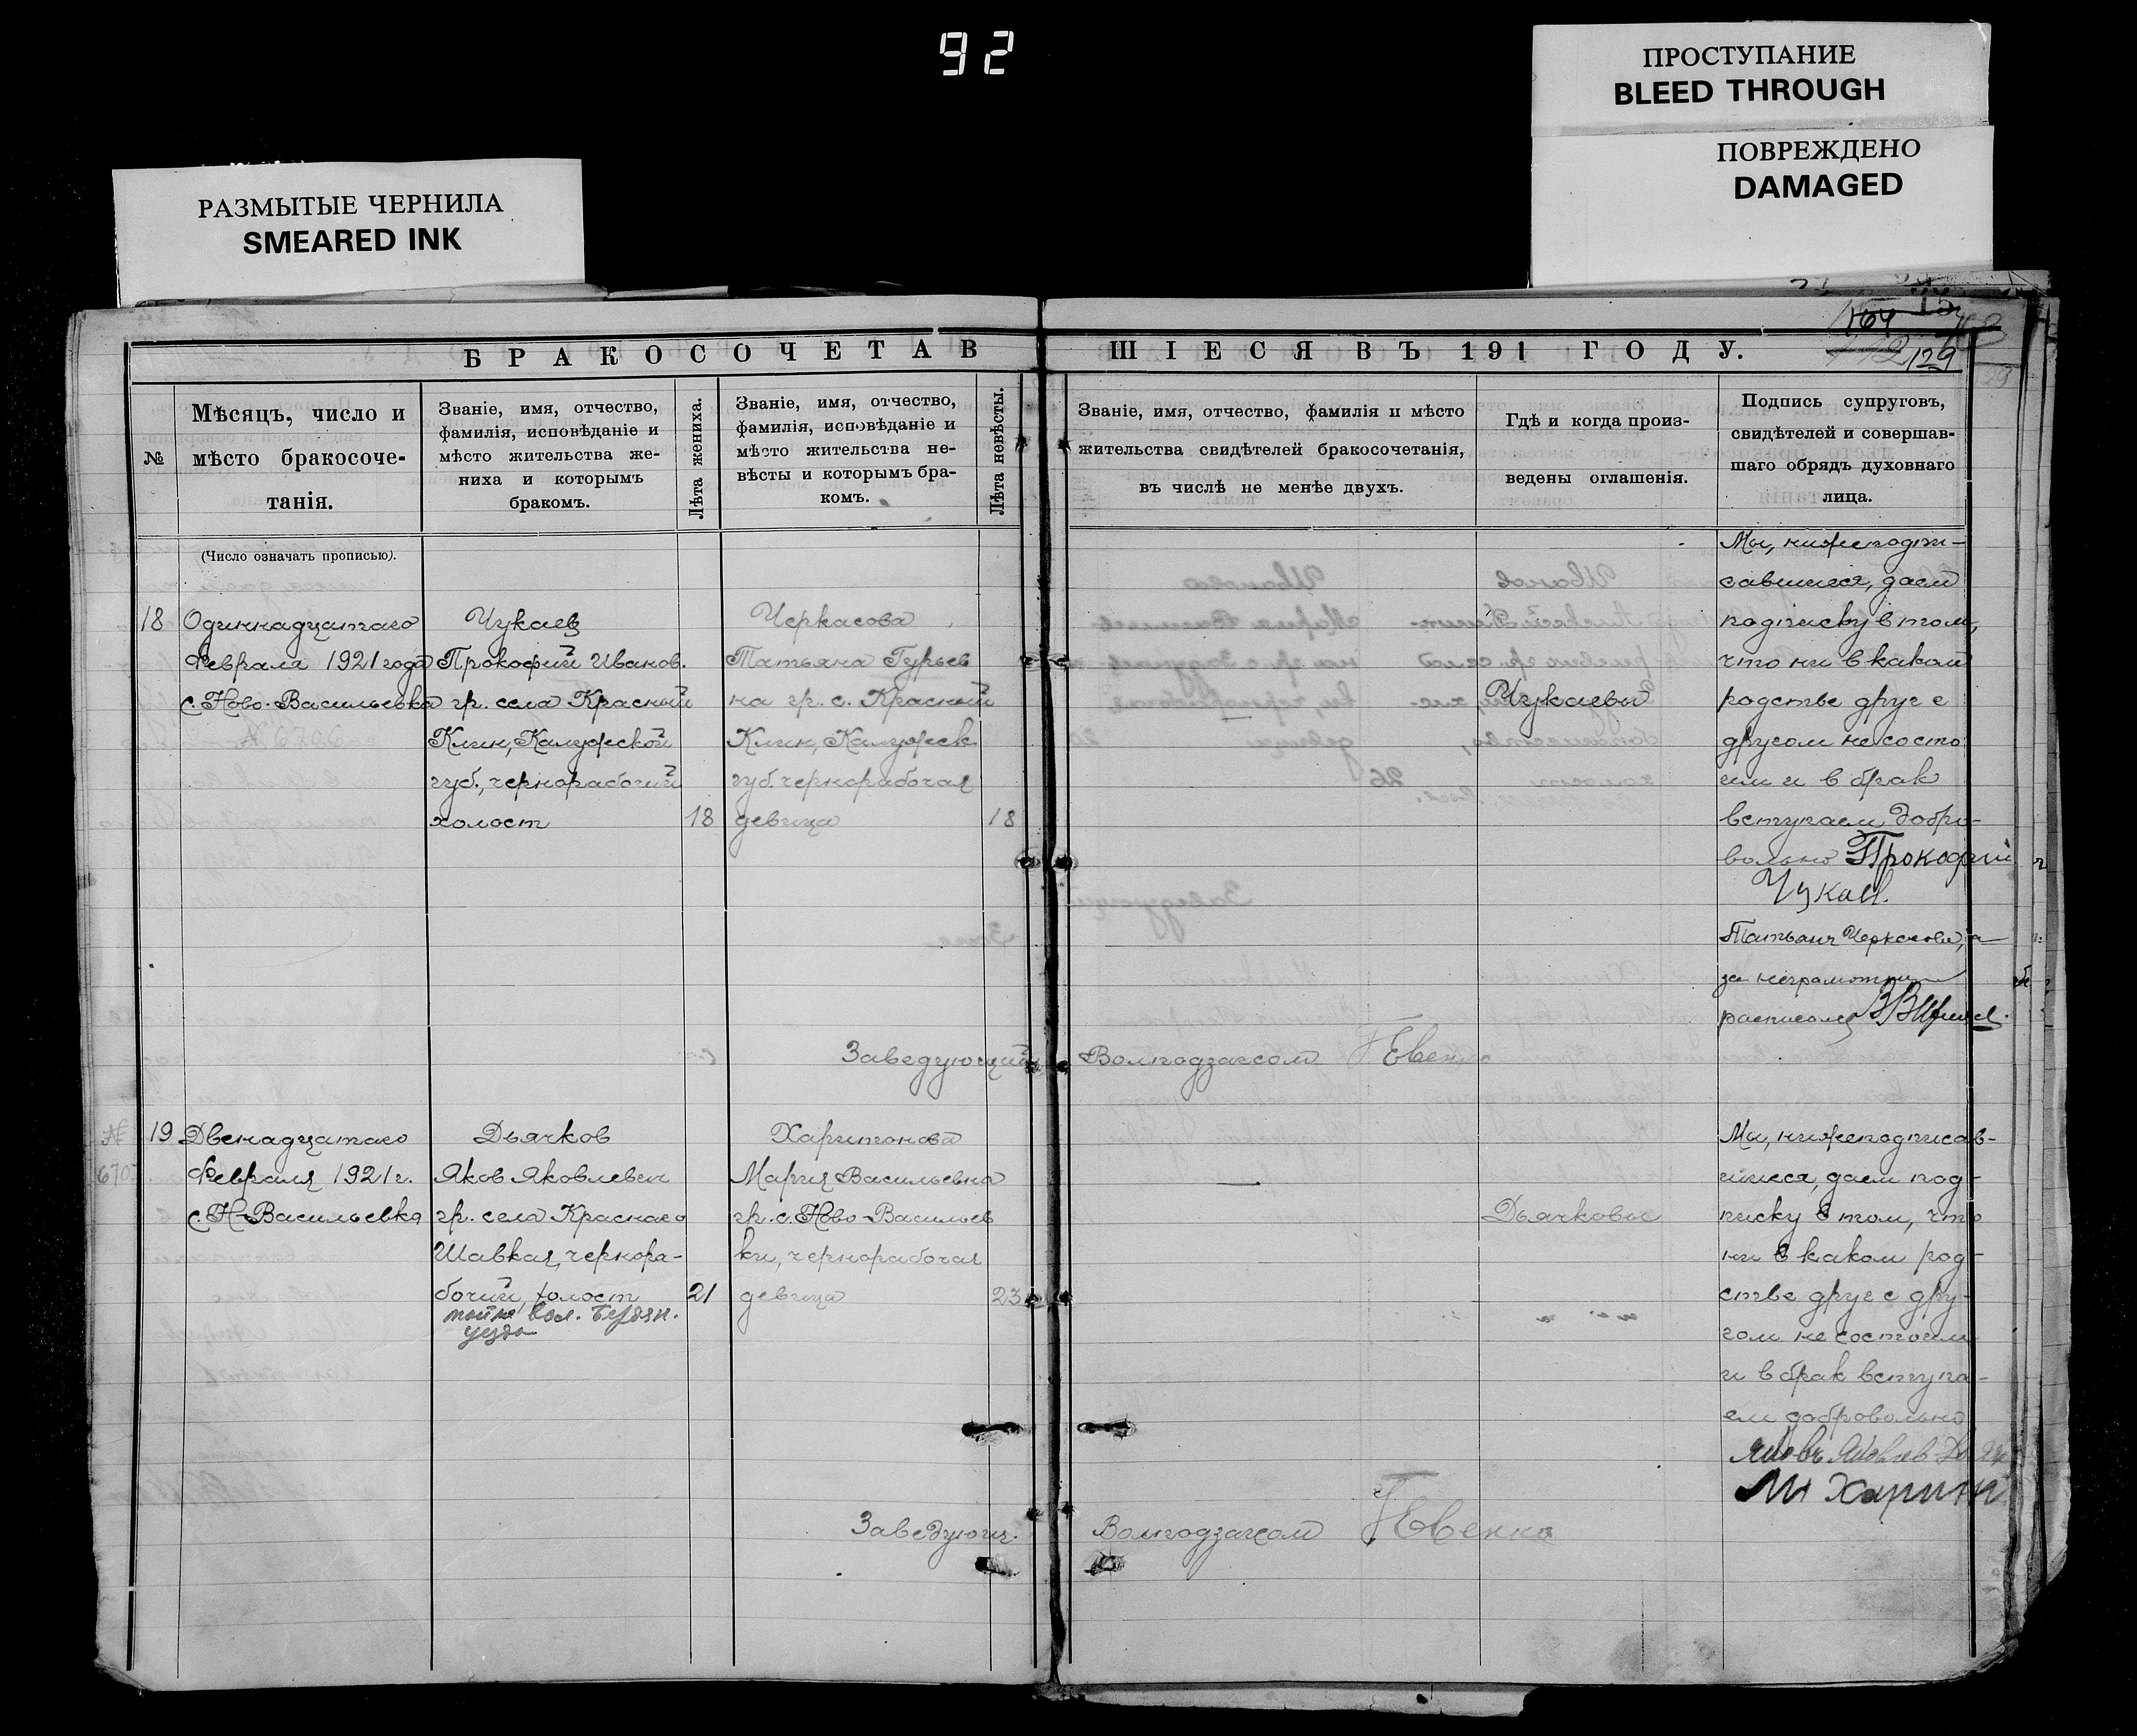 92
ПРОСТУПАНИЕ
BLEED THROUGH
ПОВРЕЖДЕНО
DAMAGED
РАЗМЫТЫЕ ЧЕРНИЛА
SMEARED INK
164
129
БРАКОСОЧЕТАВ
ШІЕСЯ ВЪ 191 ГОДУ.
№
Мѣсяцъ, число и
мѣсто бракосоче-
танія.
(Число означать прописью).
Званіе, имя, отчество,
фамилія, исповѣданіе и
мѣсто жительства же-
ниха и которымъ
бракомъ.
Лѣта жениха.
Званіе, имя, отчество,
фамилія, исповѣданіе и
мѣсто жительства не-
вѣсты и которымъ бра-
комъ.
Лѣта невѣсты.
Званіе, имя, отчество, фамилія и мѣсто
жительства свидѣтелей бракосочетанія,
въ числѣ не менѣе двухъ.
Гдѣ и когда произ-
ведены оглашенія.
Подпись супруговъ,
свидѣтелей и совершав-
шаго обрядъ духовнаго
лица.
18
Одиннадцатаго
Февраля 1921 года
с. Ново-Васильевка
Чукаев
Прокофий Иванов.
гр. села Красный
Клин, Калужской
губ., чернорабочий
холост
18
Черкасова
Татьяна Гурьев
на гр. с. Красный
Клин, Калужск
губ. чернорабочая
девица
18
Чукаевы
Мы, нижеподпи-
савшиеся, даем
подписку в том,
что ни в каком
родстве друг с
другом не состо
им и в брак
вступаем добро-
вольно Прокофий
Чукаев.
Татьяна Черкасова, а
за неграмотную
расписался
Заведующий
Волподзагсом Евенко
19
Двенадцатаго
Февраля 1921 г.
с. Н-Васильевка
Дьячков
Яков Яковлевич
гр. села Краснаго
Шавкая, чернора-
бочий, холост
той же вол. Бердян.
уезда
21
Харитонова
Мария Васильевна
гр. с. Ново-Васильев
ки, чернорабочая
девица
23
Дьячковы
Мы, нижеподписав-
шиеся, даем под-
писку в том, что
ни в каком род-
стве друг с дру-
гом не состоим
и в брак вступа-
ем добровольно
Яковъ Яковлев
М Харитон
Заведующ.
Волподзагсом Евенко